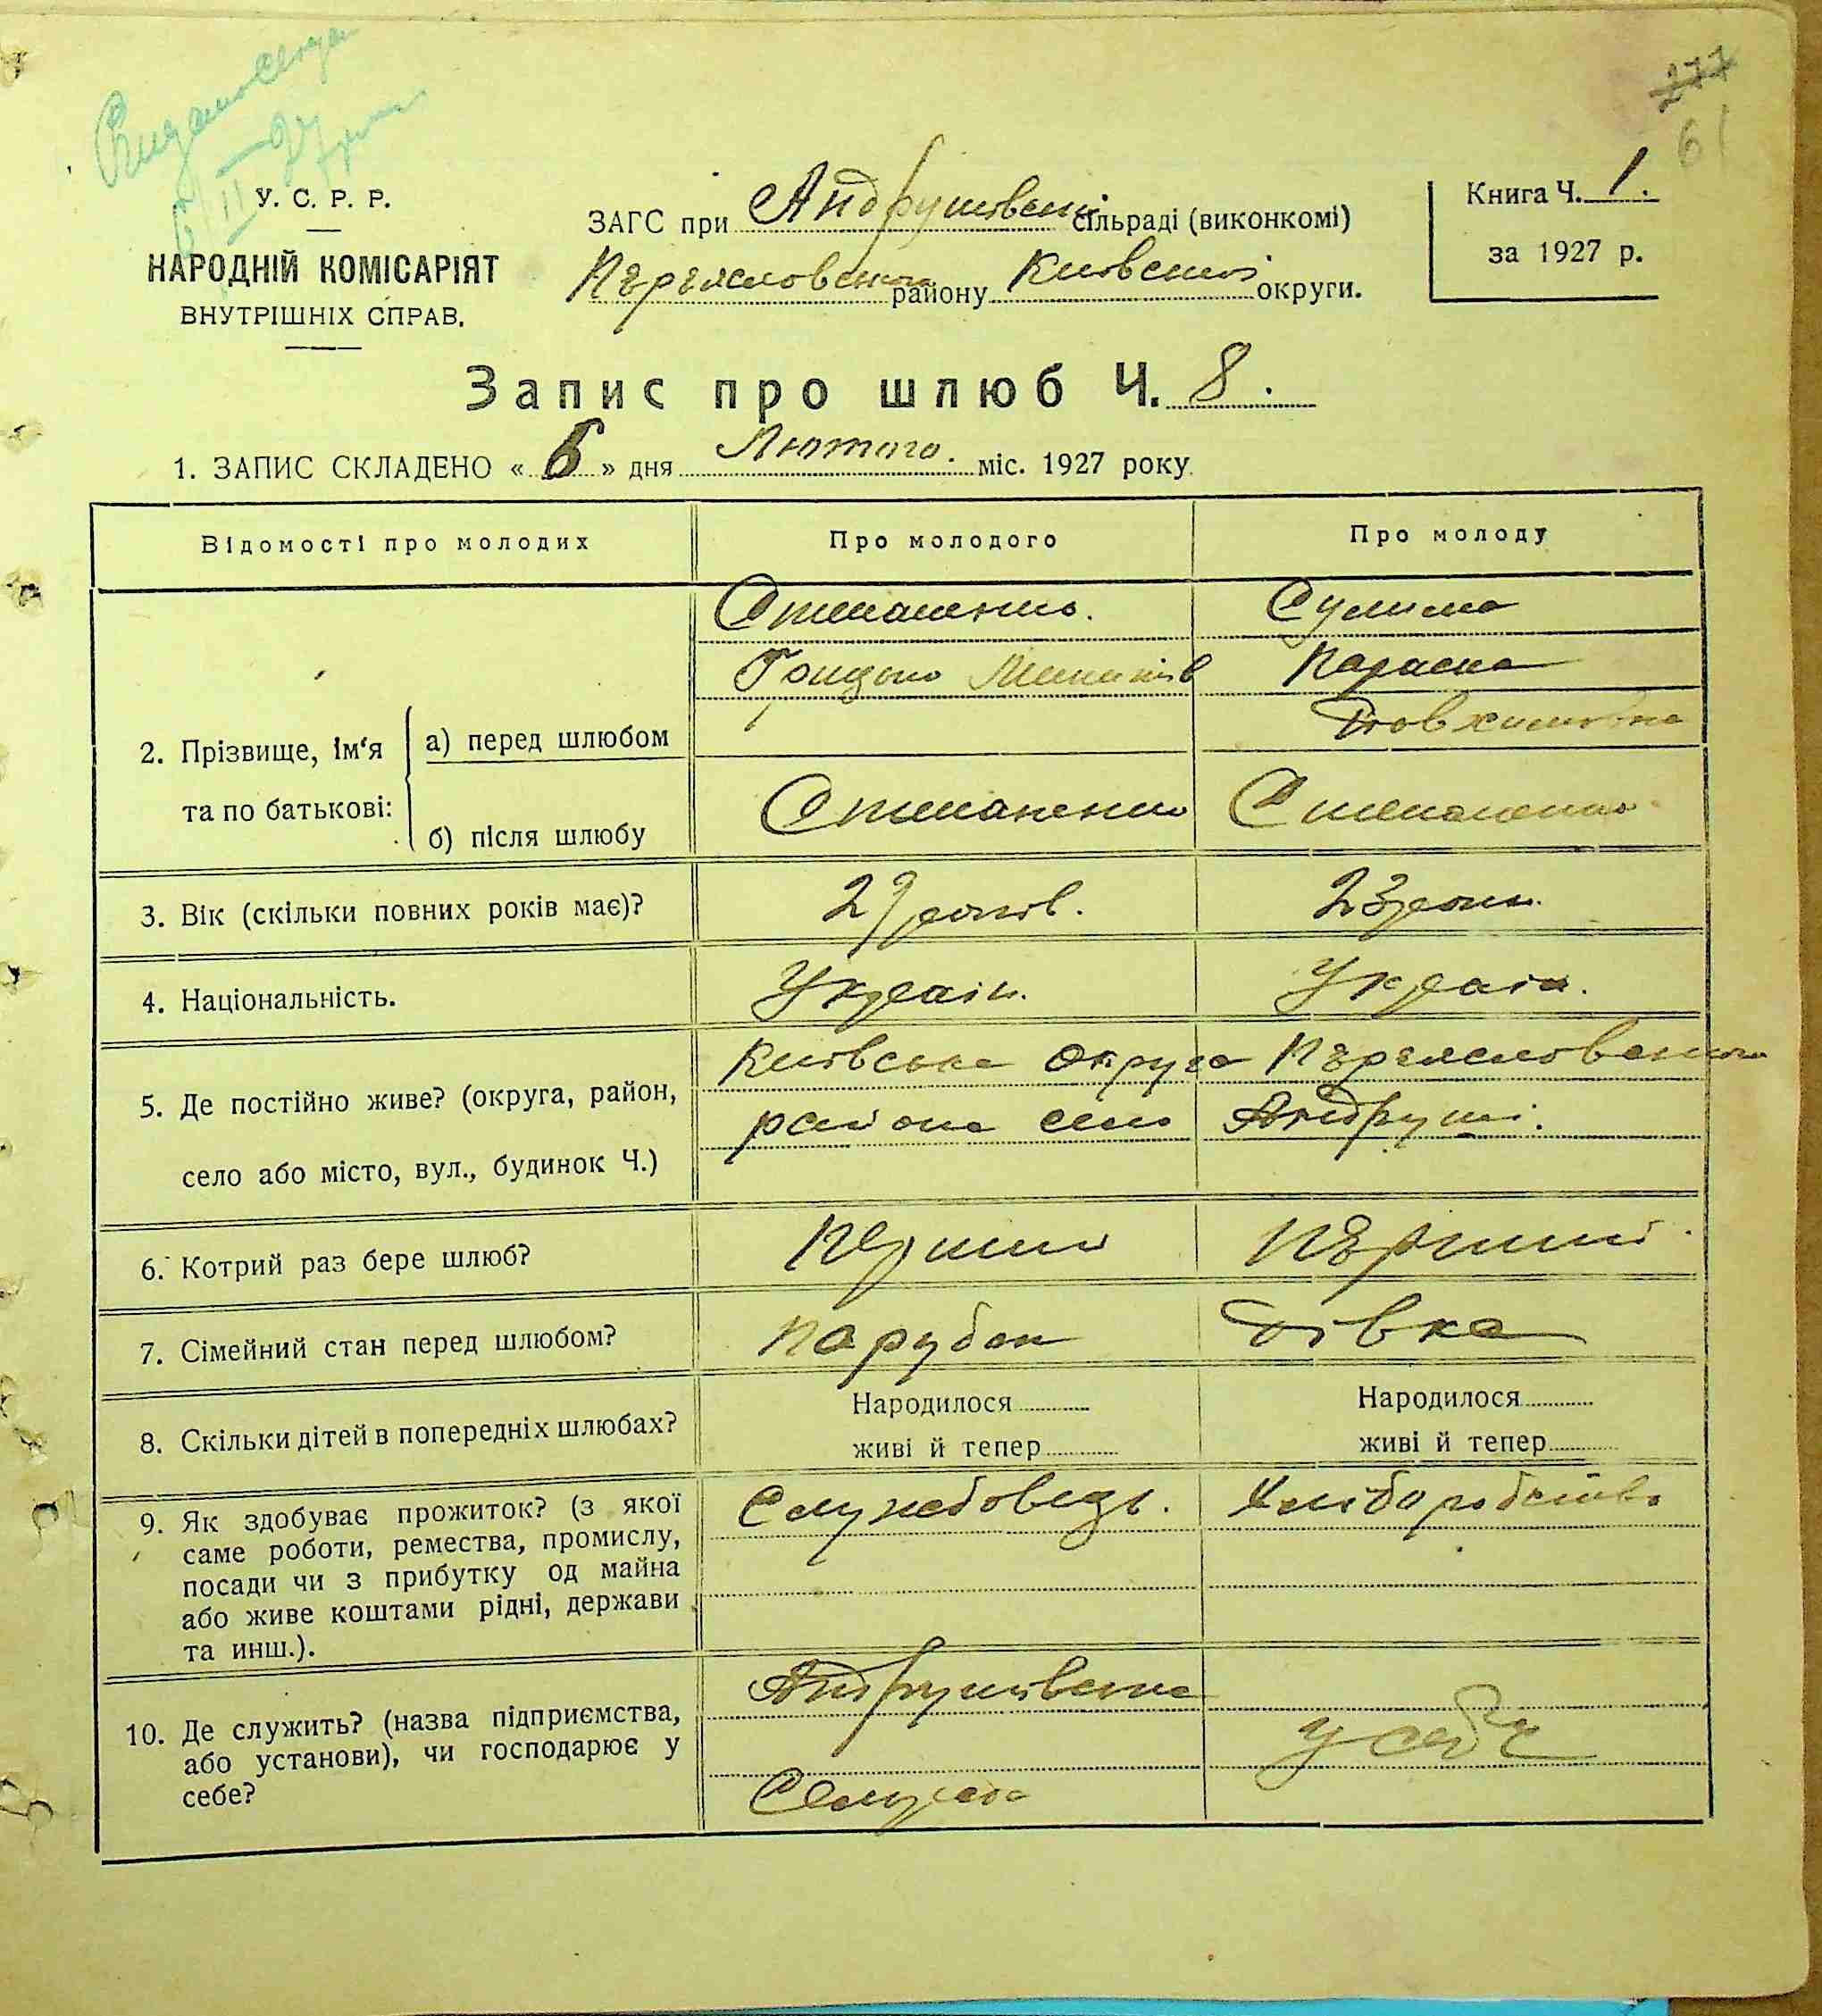 277
61
У. С. Р. Р.
НАРОДНІЙ КОМІСАРІЯТ
ВНУТРІШНІХ СПРАВ.
ЗАГС при Андрушівській сільраді (виконкомі)
району Київської округи.
Книга Ч. 1.
за 1927 р.
Запис про шлюб Ч. 8.
1. ЗАПИС СКЛАДЕНО « 6 » дня Лютого. міс. 1927 року
Відомості про молодих
Про молодого
Про молоду
2. Прізвище, ім‘я та по батькові:
а) перед шлюбом
Степаненко.
Грицько
Сулима
Параска
Явхимовна
б) після шлюбу
Степаненко
Степаненко
3. Вік (скільки повних років має)?
27 років.
23 роки.
4. Національність.
Україн.
Україн.
5. Де постійно живе? (округа, район,
село або місто, вул., будинок Ч.)
Київська округа
району село Андруші.
6. Котрий раз бере шлюб?
Перший
Пэрший
7. Сімейний стан перед шлюбом?
Парубок
Дівка
8. Скільки дітей в попередніх шлюбах?
Народилося
живі й тепер
Народилося
живі й тепер
9. Як здобуває прожиток? (з якої
саме роботи, ремества, промислу,
посади чи з прибутку од майна
або живе коштами рідні, держави
та инш.).
Службовець.
Хліборобство
10. Де служить? (назва підприємства,
або установи), чи господарює у
себе?
Андрушівська
Сельрада
у себе